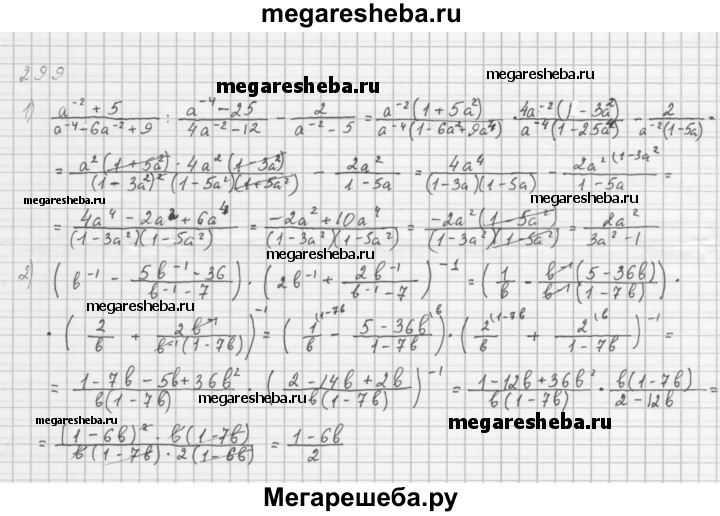 megaresheba.ru
299
megaresheba.ru megaresheba.ru
1) (a⁻² + 5)/(a⁻⁴ - 6a⁻² + 9) : (a⁻⁴ - 25)/(4a⁻² - 12) - 2/(a⁻² - 5) = a⁻²(1 + 5a²)/a⁻⁴(1 - 6a² + 9a⁴) · 4a⁻²(1 - 3a²)/a⁻⁴(1 - 25a⁴) - 2/a⁻²(1 - 5a) =
= a²(1 + 5a²) · 4a²(1 - 3a²)/(1 - 3a²)²(1 - 5a²)(1 + 5a²) - 2a²/(1 - 5a) = 4a⁴/(1 - 3a)(1 - 5a) - 2a²(1 - 3a²/(1 - 5a) =
megaresheba.ru megaresheba.ru
= (4a⁴ - 2a² + 6a⁴)/(1 - 3a²)(1 - 5a²) = (-2a² + 10a⁴)/(1 - 3a²)(1 - 5a²) = -2a²(1 - 5a²)/(1 - 3a²)(1 - 5a²) = 2a²/(3a² - 1)
2) (b⁻¹ - (5b⁻¹ - 36)/(b⁻¹ - 7)) · (2b⁻¹ + 2b⁻¹/(b⁻¹ - 7))⁻¹ = (1/b - b⁻¹(5 - 36b)/b⁻¹(1 - 7b)) ·
megaresheba.ru megaresheba.ru
· (2/b + 2b⁻¹/b⁻¹(1 - 7b))⁻¹ = (1/b ^(1-7b - (5 - 36b)/(1 - 7b) ^(b) · (2/b ^(1-7b + 2/(1 - 7b) ^(b)⁻¹ =
= (1 - 7b - 5b + 36b²)/b(1 - 7b) · ((2 - 14b + 2b)/b(1 - 7b))⁻¹ = (1 - 12b + 36b²)/b(1 - 7b) · b(1 - 7b)/(2 - 12b) =
megaresheba.ru megaresheba.ru megaresheba.ru
= (1 - 6b)² · b(1 - 7b)/b(1 - 7b) · 2(1 - 6b) = (1 - 6b)/2
Мегарешеба.ру